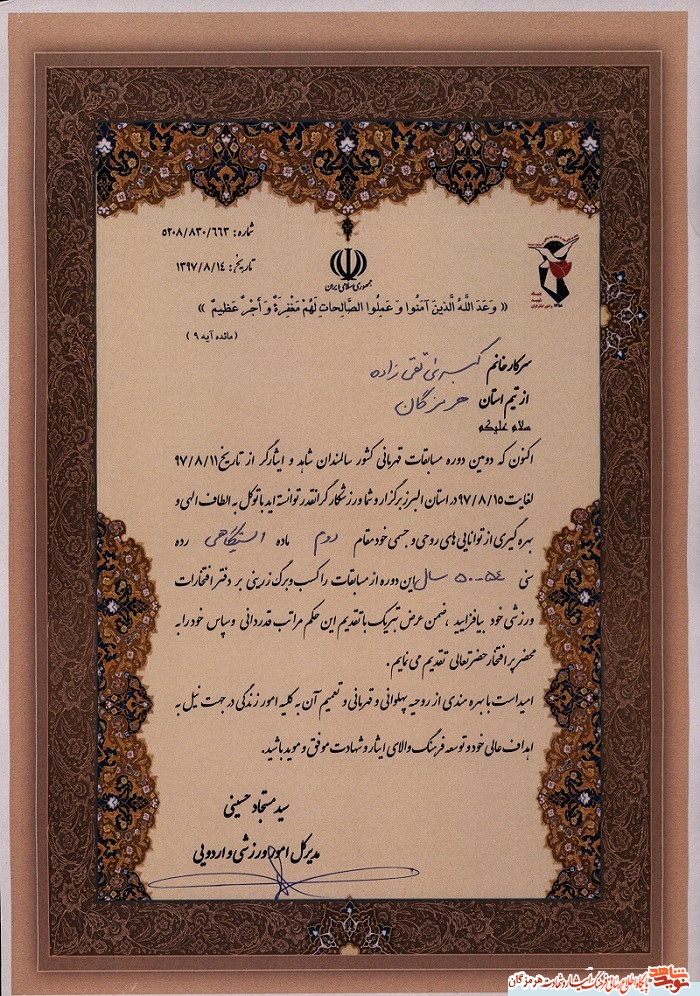 شماره: ۵۲۰۸/۸۳۰/۶۶۳
تاریخ: ۱۳۹۷/۸/۱۴
جمهوری اسلامی ایران
« وَعَدَ اللَّهُ الَّذينَ آمَنُوا وَ عَمِلُوا الصَّالِحاتِ لَهُمْ مَغْفِرَةٌ وَ أَجْرٌ عَظيمٌ »
(مائده آیه ۹)
سرکار خانم کبری تقی زاده
از تیم استان هرمزگان
سلام علیکم
اکنون که دومین دوره مسابقات قهرمانی کشور سالمندان شاهد و ایثارگر از تاریخ ۹۷/۸/۱۱
لغایت ۹۷/۸/۱۵ در استان البرز برگزار و شما ورزشکار گرانقدر توانسته اید با توکل به الطاف الهی و
بهره گیری از توانایی های روحی و جسمی خود مقام دوم ماده ایستگاهی رده
سنی ۵۴-۵۰ سال این دوره از مسابقات را کسب و برگ زرینی بر دفتر افتخارات
ورزشی خود بیافزایید ، ضمن عرض تبریک با تقدیم این حکم مراتب قدردانی و سپاس خود را به
محضر پر افتخار حضرتعالی تقدیم می نمایم .
امید است با بهره مندی از روحیه پهلوانی و قهرمانی و تعمیم آن به کلیه امور زندگی در جهت نیل به
اهداف عالی خود و توسعه فرهنگ والای ایثار و شهادت موفق و موید باشید.
سید سجاد حسینی
مدیر کل امور ورزشی و اردویی
نوید شاهد پایگاه اطلاع رسانی فرهنگ ایثار و شهادت هرمزگان